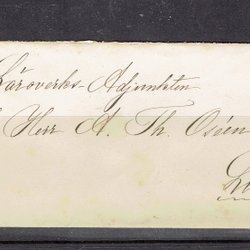 Läroverks-Adjunkten
Herr A. Th. Oséen